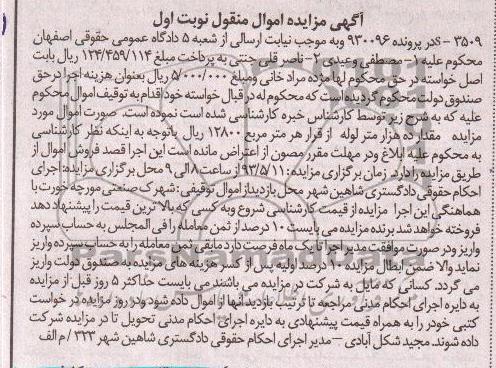 آگهی مزایده اموال منقول نوبت اول
۳۵۰۹ - s در پرونده ۹۳۰۰۹۶ وبه موجب نیابت ارسالی از شعبه ۵ دادگاه عمومی حقوقی اصفهان
محکوم علیه ۱- مصطفی وعیدی ۲- ناصر قلی جنتی به پرداخت مبلغ ۱۲۴/۴۵۹/۱۱۴ ریال بابت
اصل خواسته در حق محکوم لها مژده مراد خانی ومبلغ ۵/۰۰۰/۰۰۰ ریال بعنوان هزینه اجرا درحق
صندوق دولت محکوم گردیده است که محکوم له در قبال خواسته خود اقدام به توقیف اموال محکوم
علیه که به شرح زیر توسط کارشناس خبره کارشناسی شده است نموده است. صورت اموال مورد
مزایده مقدار ده هزار متر لوله از قرار هر متر مربع ۱۲۸۰۰ ریال باتوجه به اینکه نظر کارشناسی
به محکوم علیه ابلاغ ودر مهلت مقرر مصون از اعتراض مانده است این اجرا قصد فروش اموال از
طریق مزایده را دارد. زمان برگزاری مزایده: ۹۳/۵/۱۱ از ساعت ۸ الی ۹ محل برگزاری مزایده: اجرای
احکام حقوقی دادگستری شاهین شهر محل بازدید از اموال توقیفی: شهرک صنعتی مورچه خورت با
هماهنگی این اجرا مزایده از قیمت کارشناسی شروع وبه کسی که بالا ترین قیمت را پیشنهاد دهد
فروخته خواهد شد برنده مزایده می بایست ۱۰ درصد از ثمن معامله را فی المجلس به حساب سپرده
واریز ودر صورت موافقت مدیر اجرا تا یک ماه فرصت دارد مابقی ثمن معامله را به حساب سپرده واریز
نماید والا ضمن ابطال مزایده ۱۰ درصد اولیه پس از کسر هزینه های مزایده به صندوق دولت واریز
می گردد. کسانی که مایل به شرکت در مزایده می باشند می بایست حداکثر ۵ روز قبل از مزایده
به دایره اجرای احکام مدنی مراجعه تا ترتیب بازدید آنها از اموال داده شود ودر روز مزایده در خواست
کتبی خود را به همراه قیمت پیشنهادی به دایره اجرای احکام مدنی تحویل تا در مزایده شرکت
داده شوند. مجید شکل آبادی – مدیر اجرای احکام حقوقی دادگستری شاهین شهر ۳۲۳ / م الف